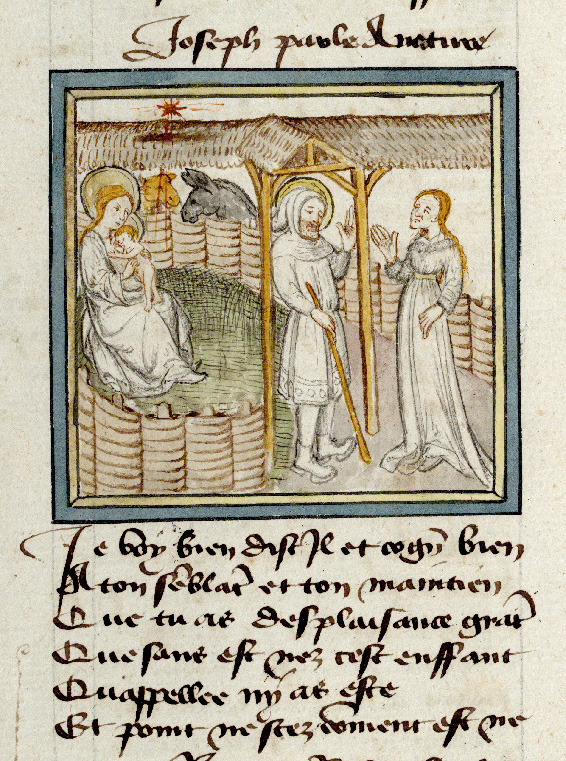 Joseph parle A nature
Je voy bien dist Il et cogn bien
A ton sēblāt et ton maintien
Que tu as desplaisance grāt
Que sans est nez cest enffant
Quappellee ny as este
Et point ne scez cōment est ne